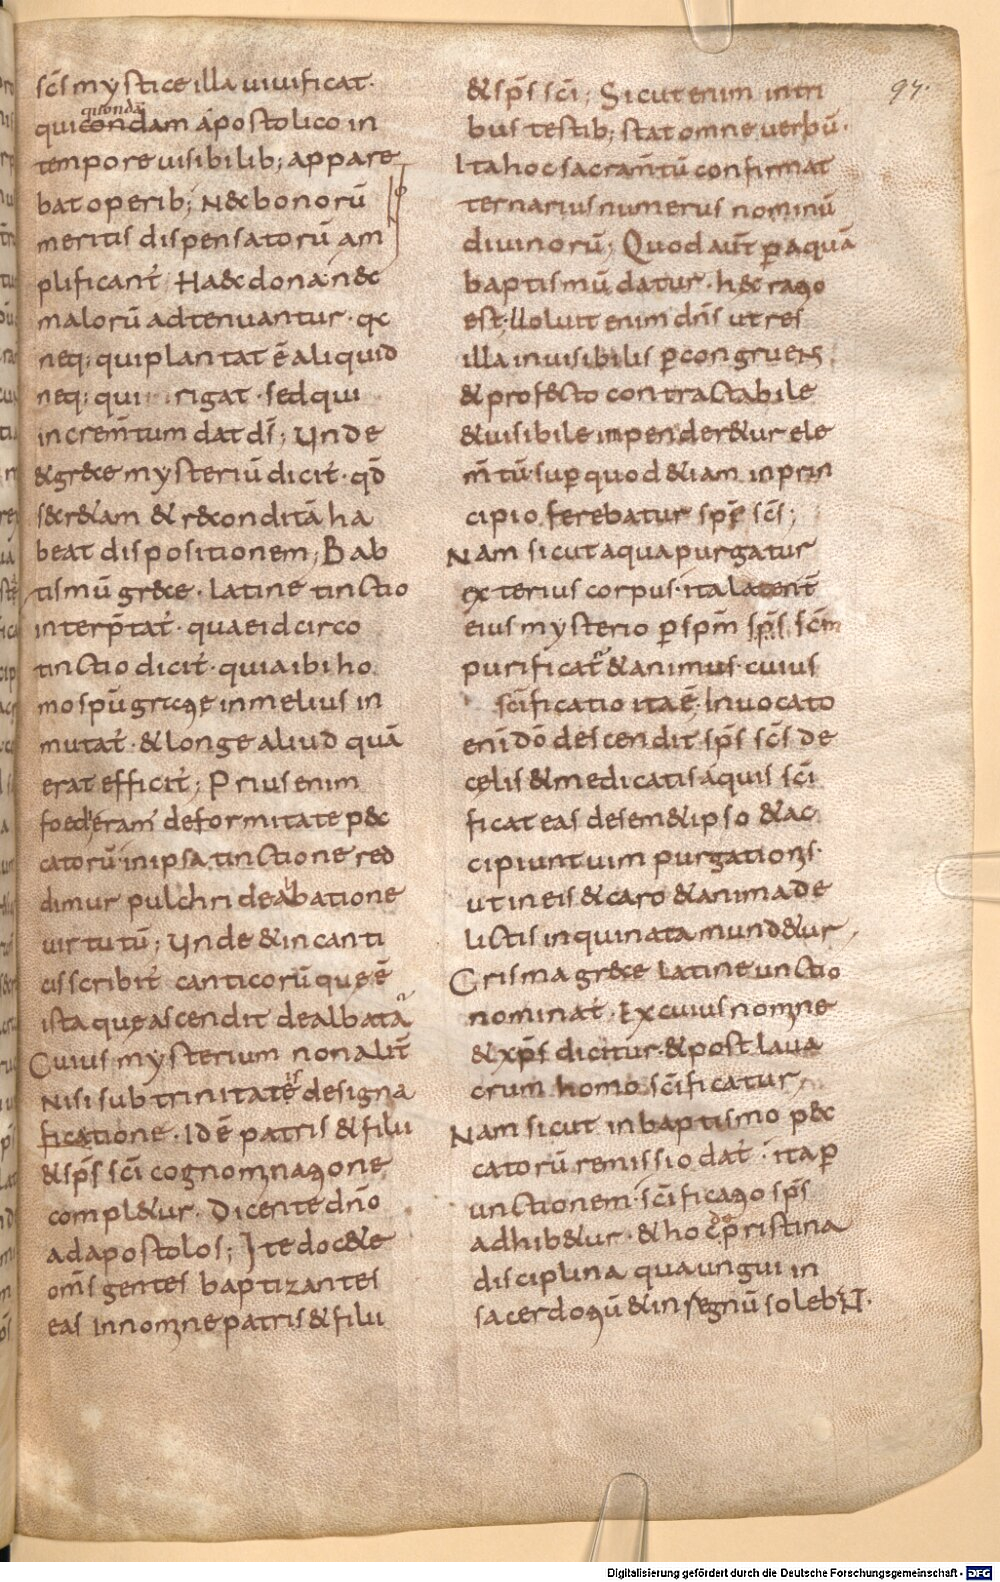 97.
scs̄ mystice illa uiuificat·
quondā
quicondam apostolico in
tempore uisibilib; appare
bat operib; N&c bonorū
meritis dispensatorū am
plificant̄ Ha&c dona·n&c
malorū adtenuantur·
neq; qui plantat ē aliquid
neq; qui rigat· sed qui
increm̄tum dat ds̄; Unde
& gr&ce mysteriū dicit̄· qđ
s&cr&am & r&conditā ha
beat dispositionem; Bab
tismū gr&ce· latine tinctio
interp̄tat̄· quae idcirco
tinctio dicit̄· quia ibi ho
mo spū in melius in
mutat̄· & longe aliud quā
erat efficit̄; Prius enim
foederam deformitate p&c
catorū in ipsa tinctione red
dimur pulchri dealbatione
uirtutū; Unde & in canti
cis scribit̄ canticorū quę ē
ista quę ascendit dealbata
Cuius mysterium non alit̄
Nisi sub trinitatē designa
ficatione· Id ē patris & filii
& sps̄ sci̅ cognominatione
compl&ur· Dicente dn̄o
ad apostolos; Ite doc&e
oms̄ gentes baptizantes
eas in nomine patris & filii
& sps̄ sci̅; Sicut enim in tri
bus testib; stat omne uerbū·
Ita hoc sacram̄tū confirmat
ternarius numerus nominū
diuinorū; Quod aut̄ ꝑ aquā
baptismū datur· h&c ratio
est; Uoluit enim dn̄s ut res
illa inuisibilis ꝑ congruens
& prof&cto contractabile
& uisibile inpender&ur ele
m̄tū· suꝑ quod &iam in prin
cipio ferebatur sps̄ scs̄;
Nam sicut aqua purgatur
exterius corpus· ita latent̄
eius mysterio ꝑ spm̄ scm̄
purificat̄ & animus· cuius
sci̅ficatio ita ē· Inuocato
eni̅ dō descendit sps̄ scs̄ de
cęlis & medicatis aquis sci̅
ficat eas de sem&ipso & ac
cipiunt uim purgationis·
ut in eis & caro & anima de
lictis inquinata mund&ur
Crisma gr&ce latine unctio
nominat̄· Ex cuius nomine
& xps̄ dicitur· & post laua
crum homo sci̅ficatur
Nam sicut in baptismo p&c
catorū remissio dat̄· ita ꝑ
unctionem· sci̅ficatio sps̄
adhib&ur· & hoc pristina
disciplina qua ungui in
sacerdotiū & in regnū soleb
Digitalisierung gefördert durch die Deutsche Forschungsgemeinschaft - DFG